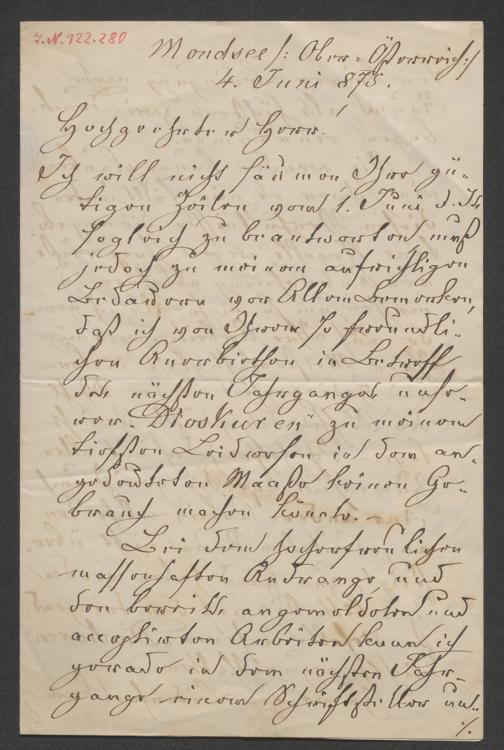 J.N. 122.280
Mondsee /: Ober-Österreich :/
4. Juni 875.
Hochgeehrter Herr.
Ich will nicht säumen, Ihre gü-
tigen Zeilen vom 1. Juni d. Js
sogleich zu beantworten, muß
jedoch zu meinem aufrichtigen
Bedauern vor Allem bemerken,
daß ich von Ihrem so freundli-
chen Anerbiethen in Betreff
des nächsten Jahrganges unse-
rer „Dioskuren" zu meinem
tiefsten Leidwesen in dem an-
gedeuteten Maaße keinen Ge-
brauch machen könnte.-
Bei dem hocherfreulichen
massenhaften Andrange und
den bereits angemeldeten und
acceptirten Arbeiten kann ich
gerade in dem nächsten Jahr-
gange einem Schriftsteller un-
./.